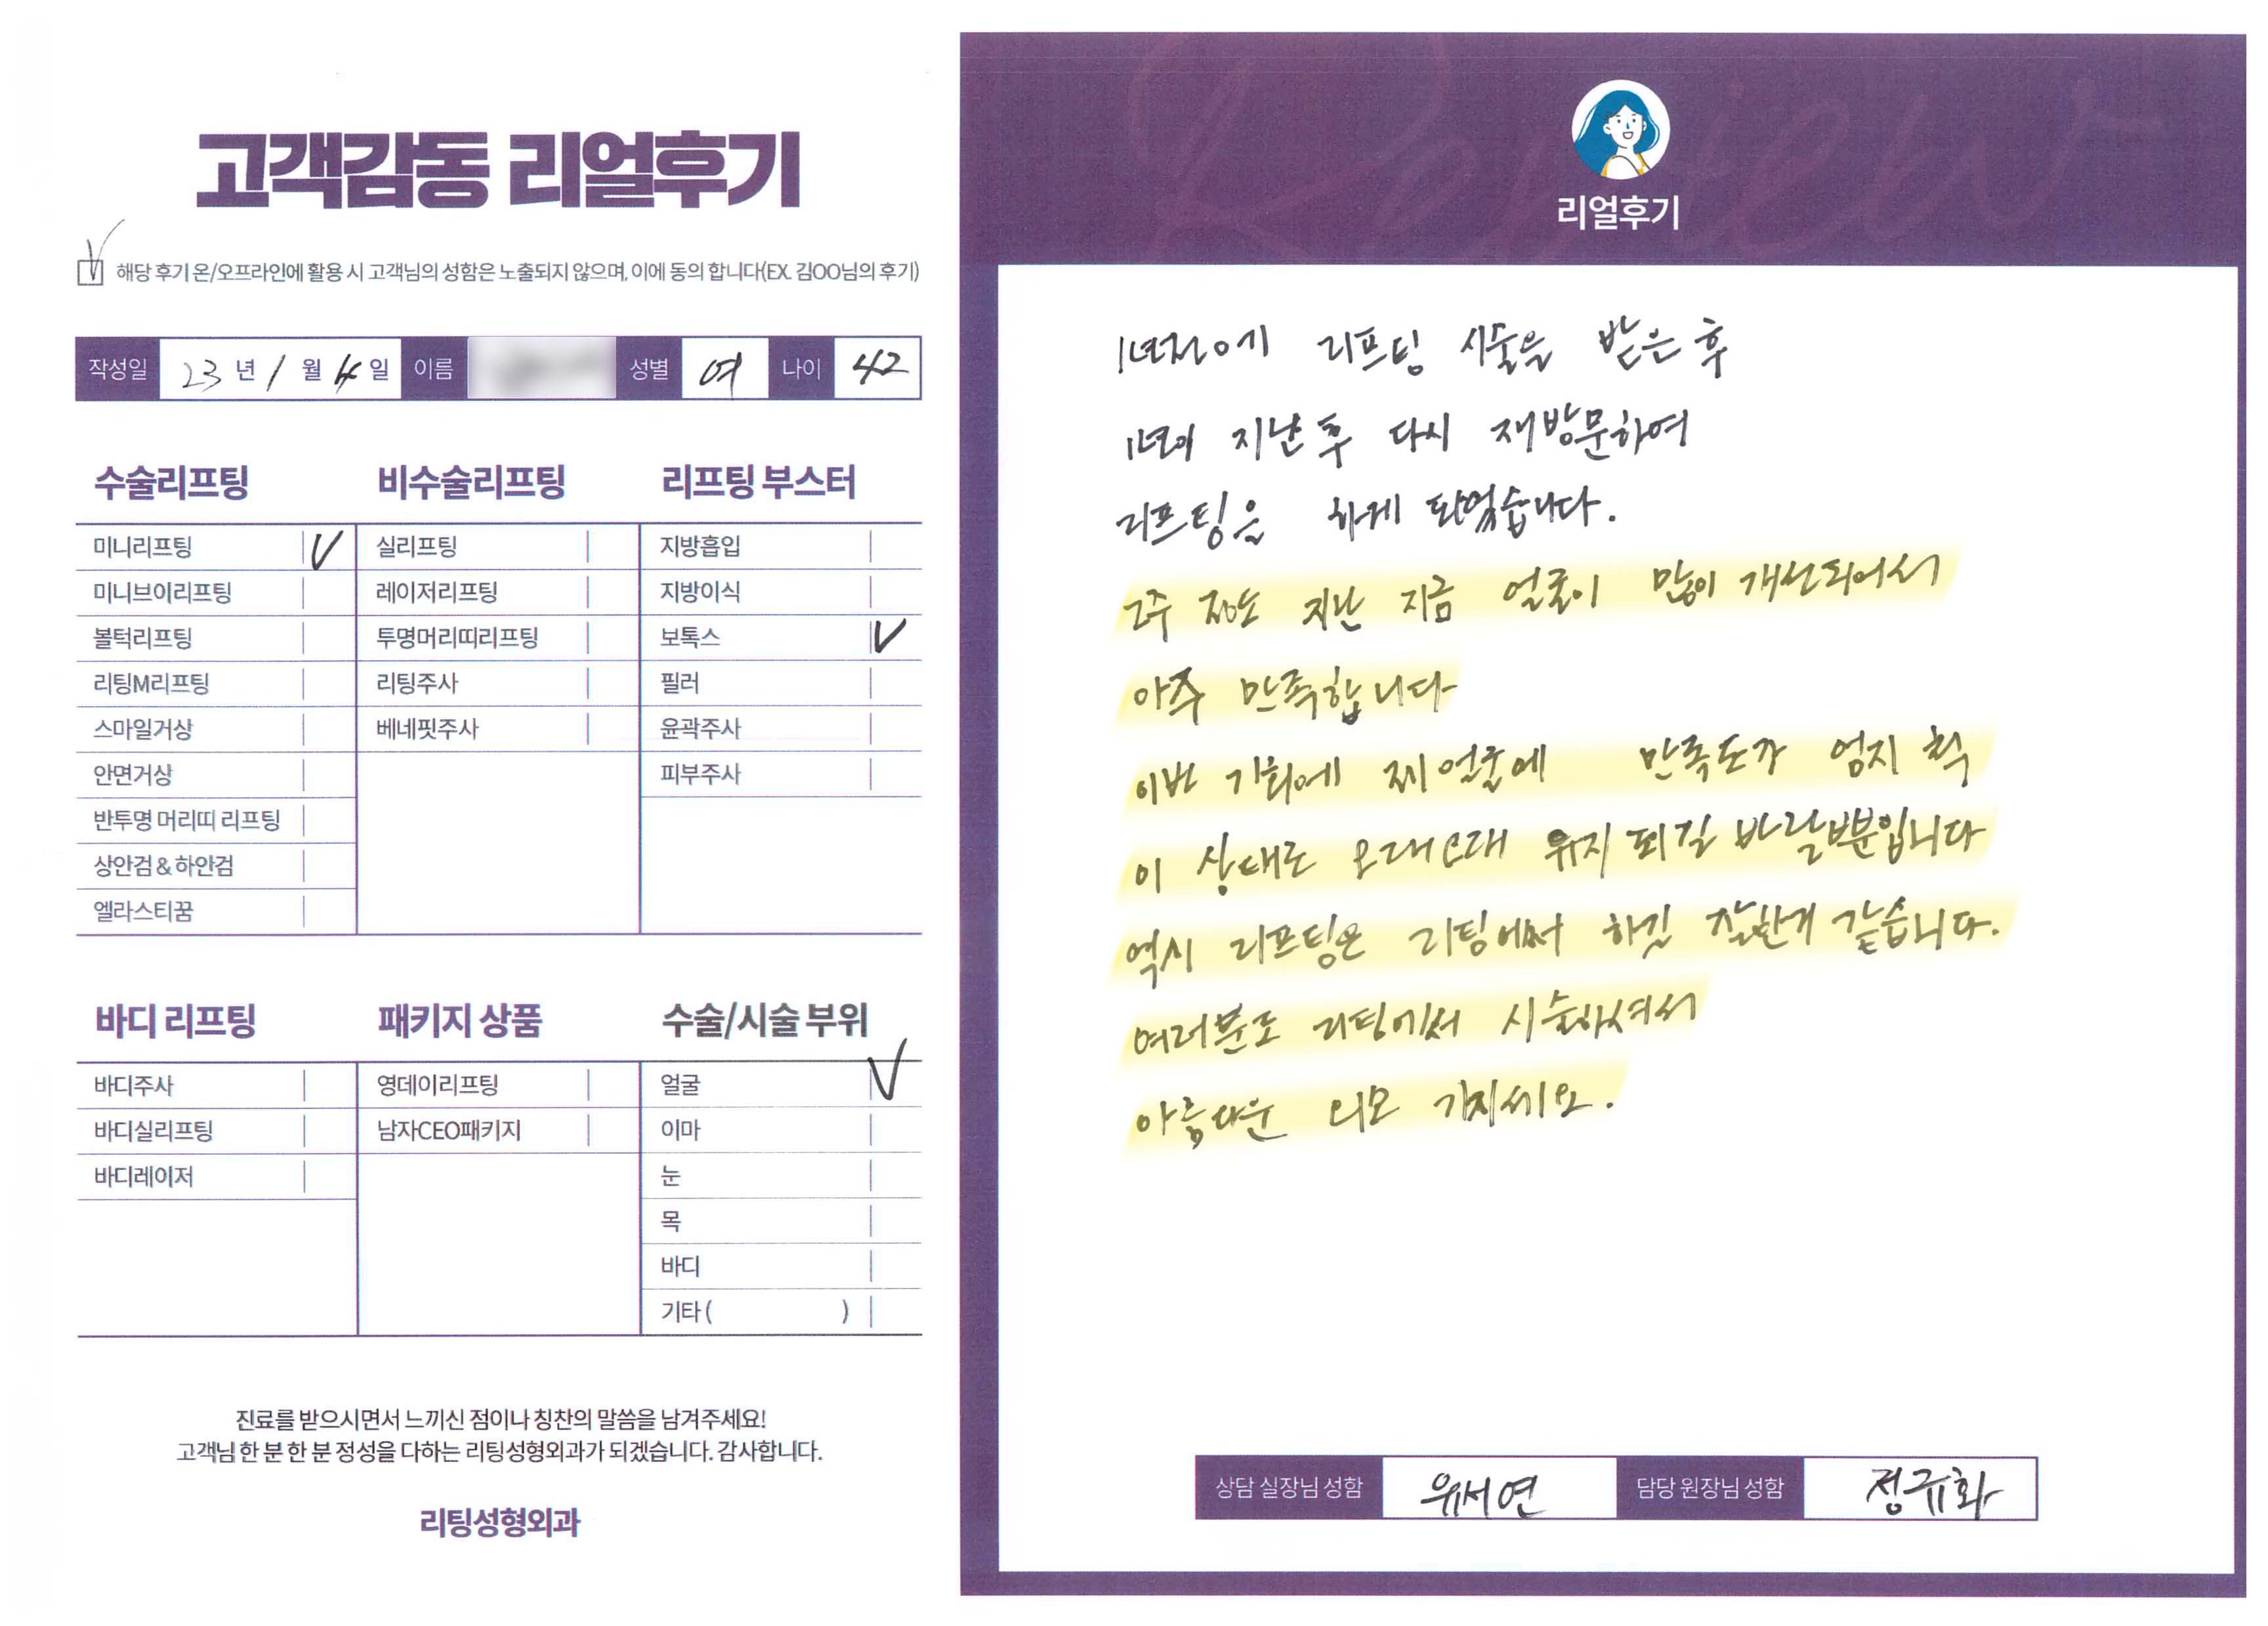 고객감동 리얼후기
해당 후기 온/오프라인에 활용 시 고객님의 성함은 노출되지 않으며, 이에 동의 합니다(EX. 김OO님의 후기)
작성일 23 년 1 월 4 일 이름 성별 여 나이 42
수술리프팅 비수술리프팅 리프팅 부스터
미니리프팅 실리프팅 지방흡입
미니브이리프팅 레이저리프팅 지방이식
볼턱리프팅 투명머리띠리프팅 보톡스
리팅M리프팅 리팅주사 필러
스마일거상 베네핏주사 윤곽주사
안면거상 피부주사
반투명 머리띠 리프팅
상안검 & 하안검
엘라스티꿈
바디 리프팅 패키지 상품 수술/시술 부위
바디주사 영데이리프팅 얼굴
바디실리프팅 남자CEO패키지 이마
바디레이저 눈
목
바디
기타 ( )
진료를 받으시면서 느끼신 점이나 칭찬의 말씀을 남겨주세요!
고객님 한 분 한 분 정성을 다하는 리팅성형외과가 되겠습니다. 감사합니다.
리팅성형외과
Review
리얼후기
1년전에 리프팅 시술을 받은 후
1년이 지난 후 다시 재방문하여
리프팅을 하게 되었습니다.
2주 정도 지난 지금 얼굴이 많이 개선되어서
아주 만족합니다
이번 기회에 제 얼굴에 만족도가 엄지 척
이 상태로 오래오래 유지 되길 바랄뿐입니다
역시 리프팅은 리팅에서 하길 잘한게 같습니다.
여러분도 리팅에서 시술하셔서
아름다운 외모 가지세요.
상담 실장님 성함 유서연 담당 원장님 성함 정규화